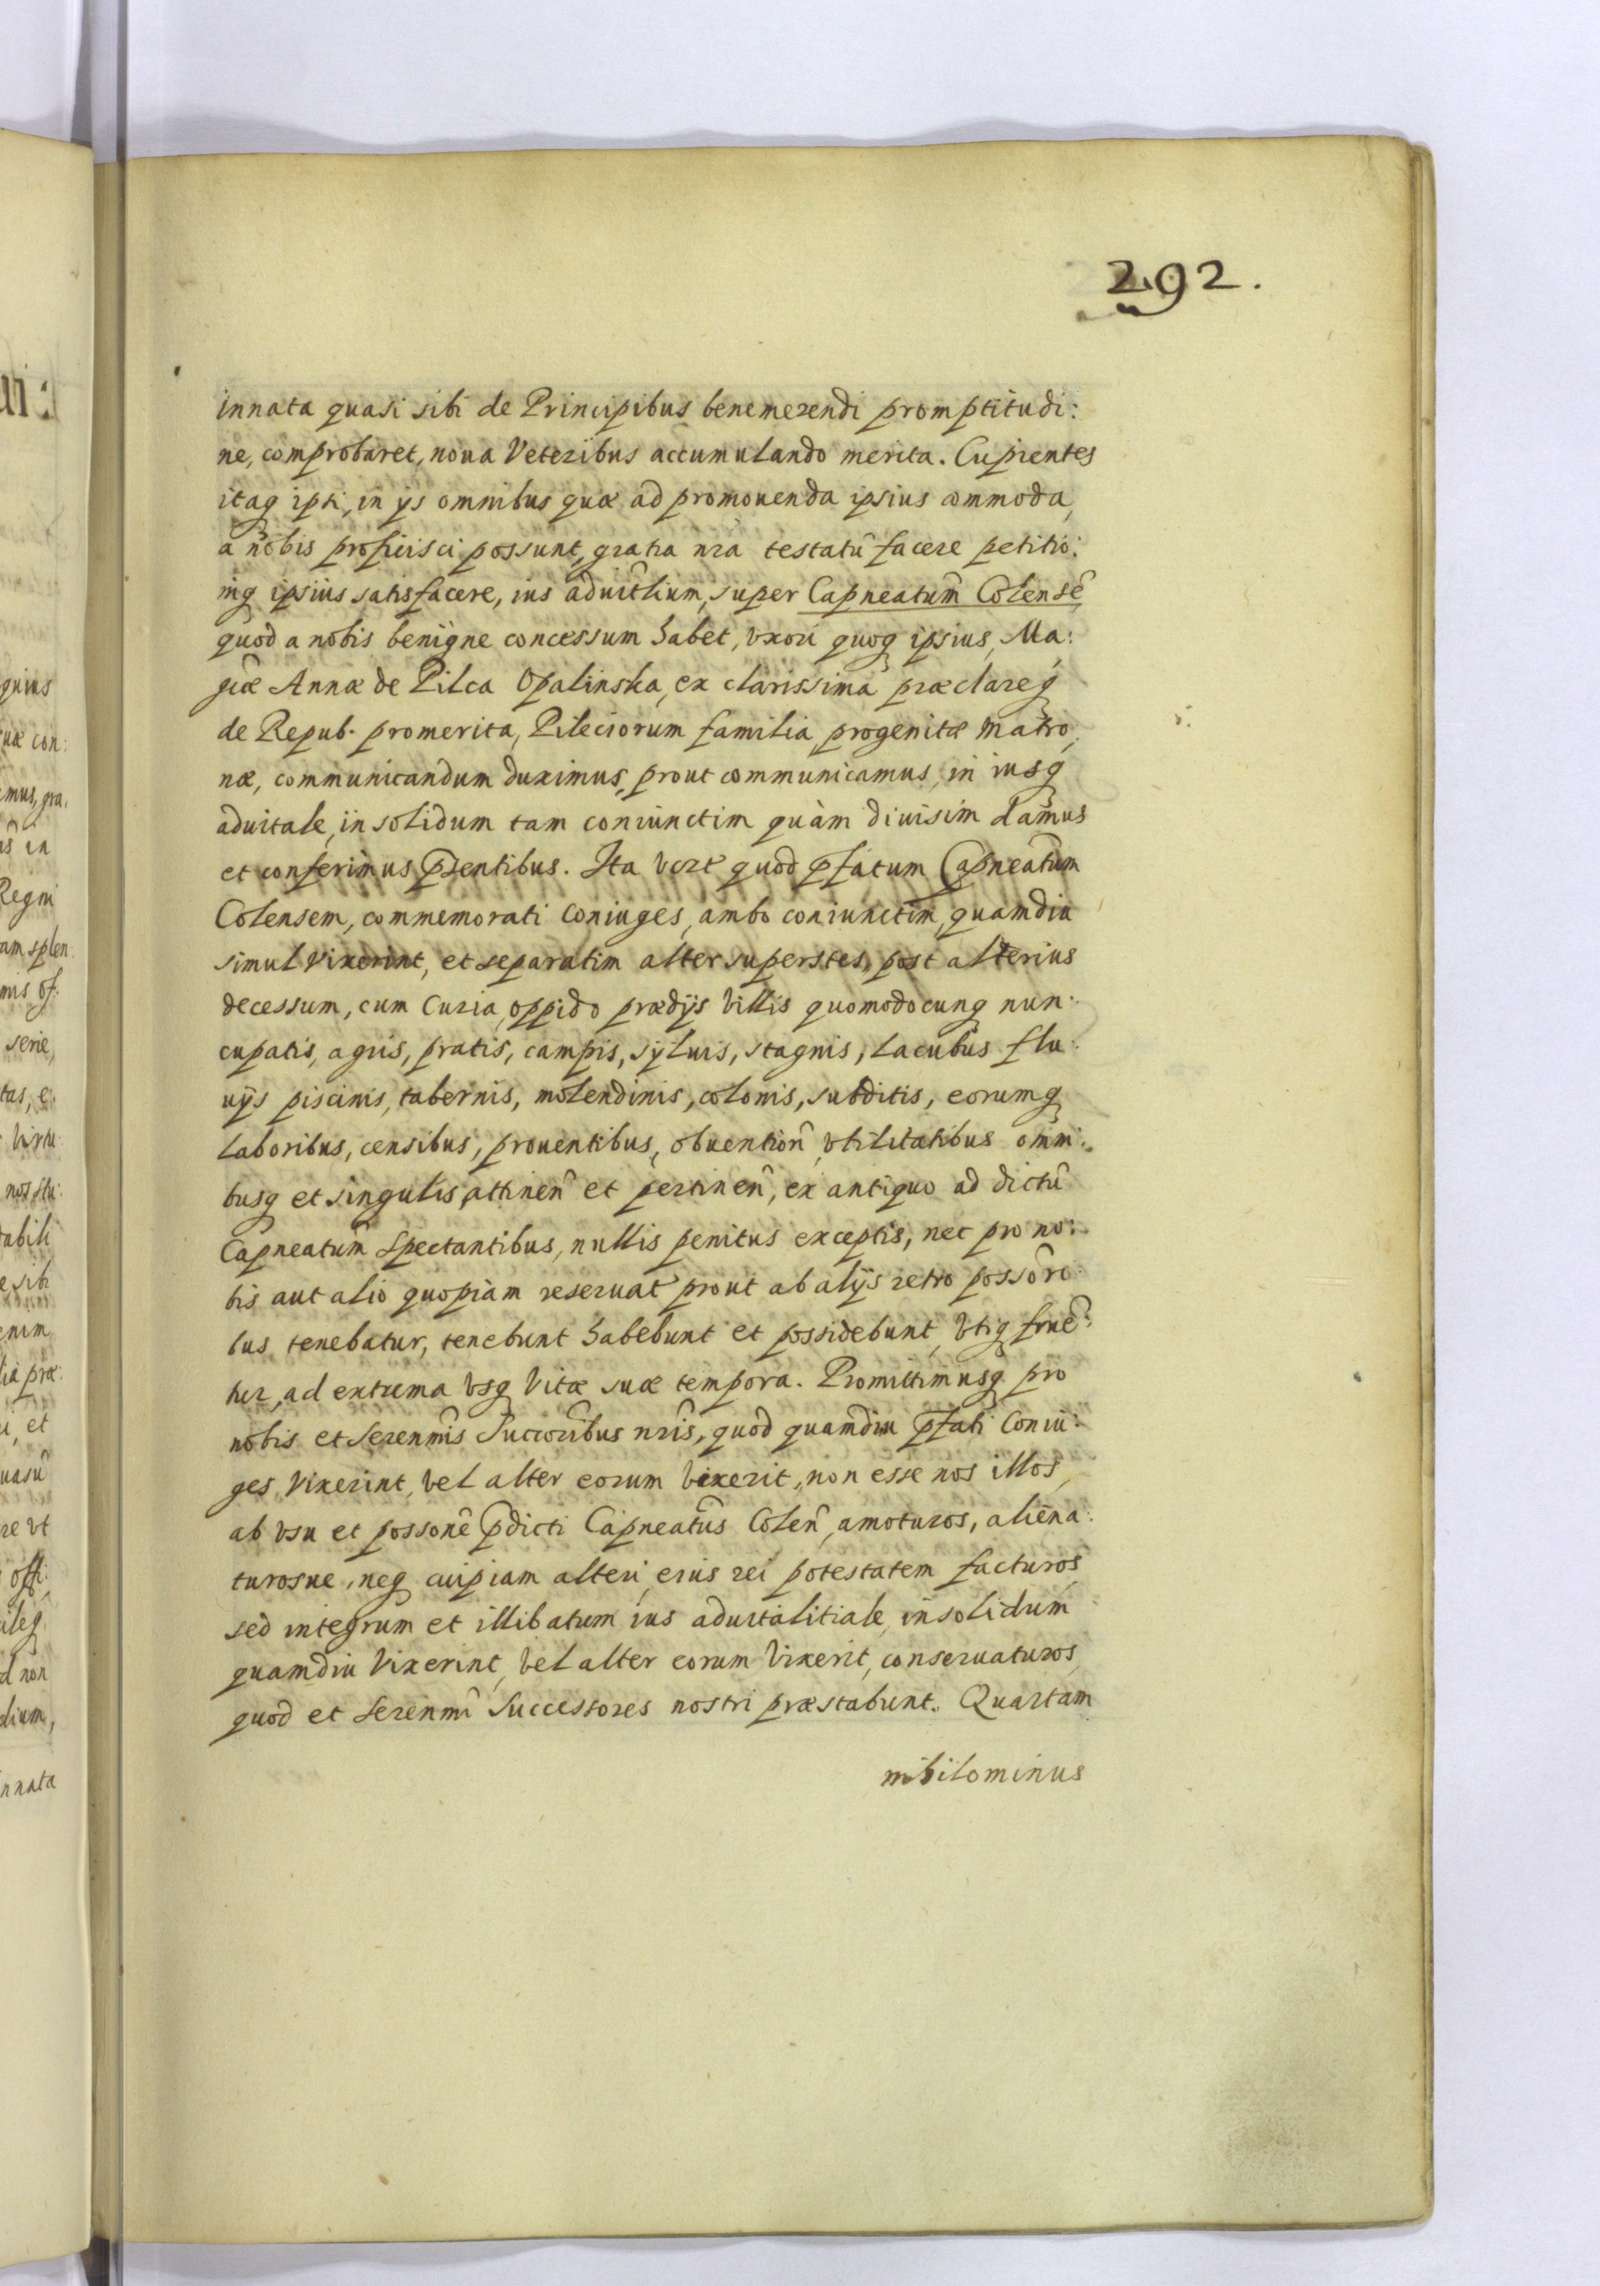 292.
innata quasi sibi de Principibus benemerendi promptitudi:
ne, comprobaret, noua Veteribus accumulando merita. Cupientes
itaq ipsi, in ijs omnibus quæ ad promouenda ipsius commoda,
a nobis proficisci possunt, gratia nr̃a testatũ facere petitio:
niq ipsius satisfacere, ius aduitlium, super Capneatum̃ Colensẽ
quod a nobis benigne concessum habet, vxori quoq ipsius, Ma:
gcæ Annæ de Pilca Opalinska, ex clarissima præclareq
de Repub. promerita, Pileciorum familia, progenitæ Matro:
næ, communicandum duximus, prout communicamus, in iusq
aduitale, in solidum tam coniunctim quàm diuisim damus
et conferimus p̃sentibus. Ita vt quod p̃fatum Capneatum
Colensem, commemorati Coniuges, ambo coniunctim, quamdiu
simul vixerint, et separatim alter superstes, post alterius
decessum, cum Curia, oppido prædijs Villis quomodocunq nun:
cupatis, agris, pratis, campis, syluis, stagnis, lacubus flu:
uijs piscinis, tabernis, molendinis, colonis, subditis, eorumq
laboribus, censibus, prouentibus, obuention̂, vtilitatibus omni:
busq et singulis, attinen̂ et pertinen̂, ex antiquo ad dictũ
Capneatum̃ Spectantibus, nullis penitus exceptis, nec pro no:
bis aut alio quopiam reseruat prout ab alijs retro possor̃i:
bus tenebatur, tenebunt habebunt et possidebunt, vtiq frue:
tur, ad extrema vsq Vitæ suæ tempora. Promittimusq pro
nobis et Serenmis Succoribus nr̃is, quod quamdiu p̃fati Coniu:
ges vixerint, vel alter eorum vixerit, non esse nos illos,
ab vsu et possonẽ p̃dicti Capneatus Colen̂, amoturos, aliena:
turosue, neq cuipiam alteri, eius rei potestatem facturos,
sed integrum et illibatum ius aduitalitiale, in solidum
quamdiu vixerint, vel alter eorum vixerit, conseruaturos,
quod et Serenmi Successores nostri præstabunt. Quartam
nihilominus